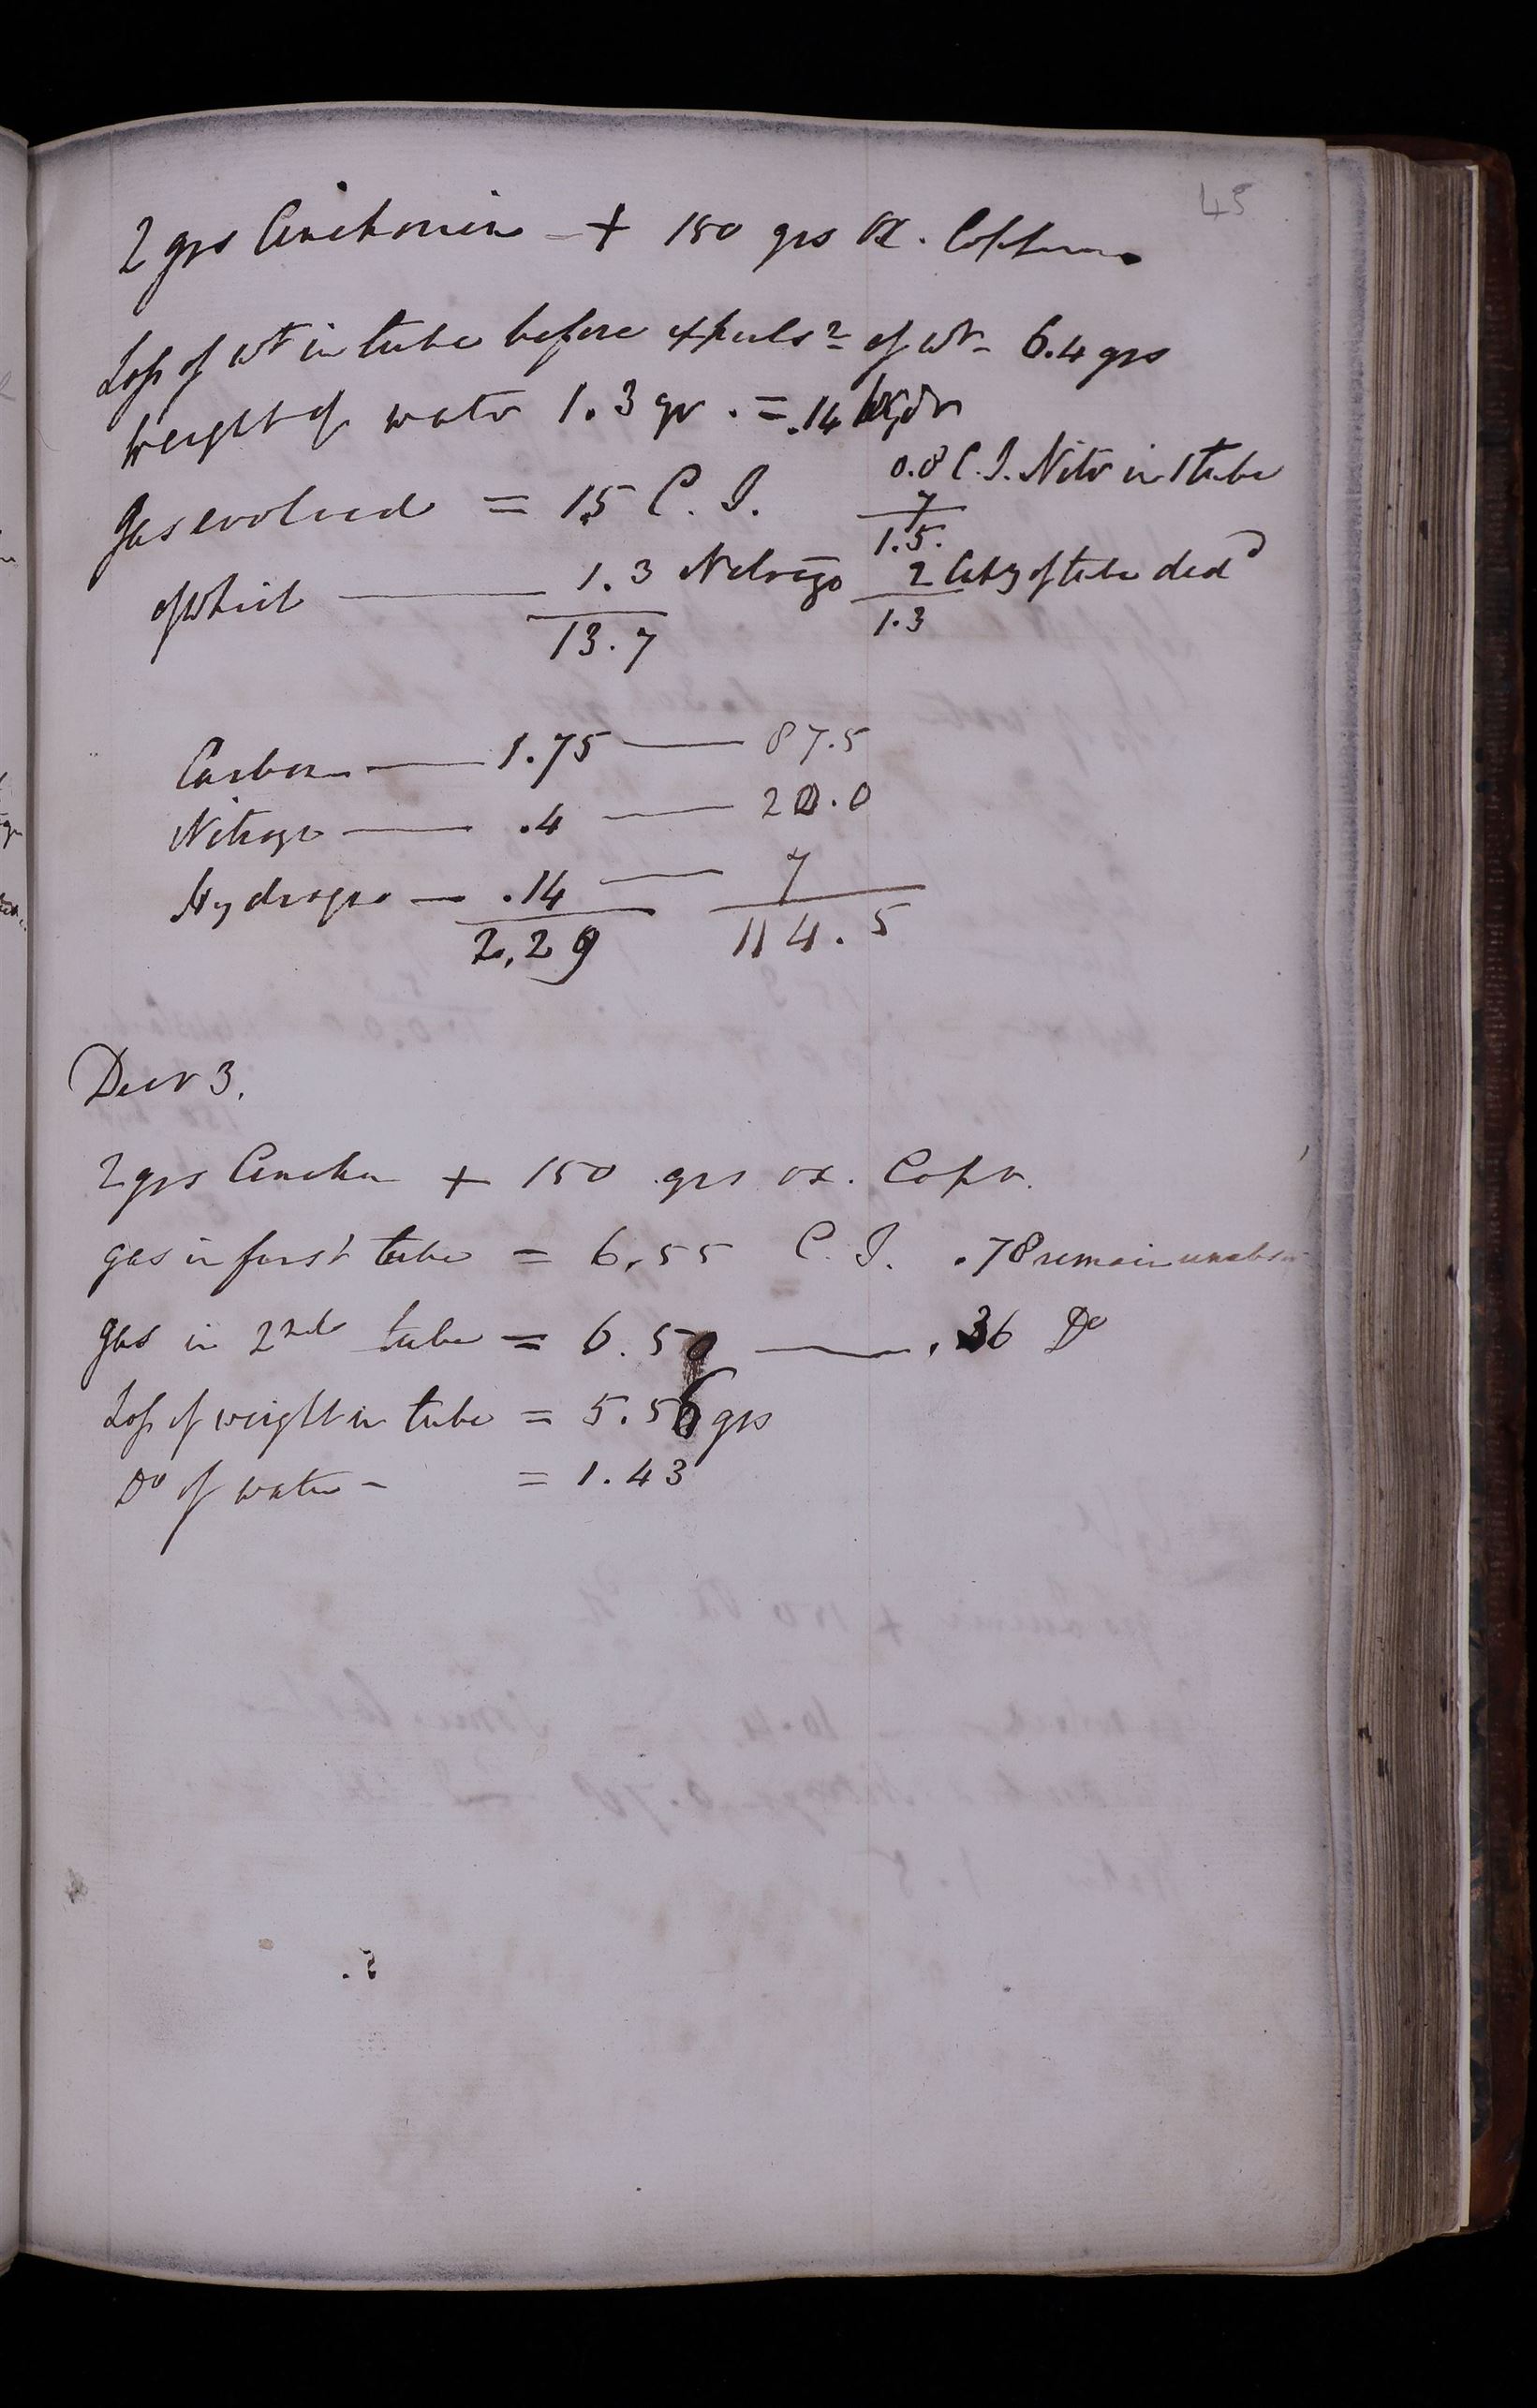 45
2 grs Cinchonin - + 150 grs Ox. Copper.
Loss of wt in tube before expulsn of wr - 6.4 grs
Weight of water 1.3 gr. = .14 Hydr
0.8 C.I. Nitr in 1 tube
Gas evolved = 15 C. I.
7
1.5.
of which 1.3 Nitrogn
2 Capy of tube dedd
13.7
1.3
Carbon 1.75 87.5
Nitrogn .4 20.0
Hydrogn .14 7
2.29 114.5
Decr 3.
2 grs Cinchn + 150 grs ox. Coppr.
gas in first tube = 6.55 C. I. .78 remain unabsr
gas in 2nd tube = 6.50 .36 Do
Loss of weight in tube = 5.56 grs
Do of water - = 1.43